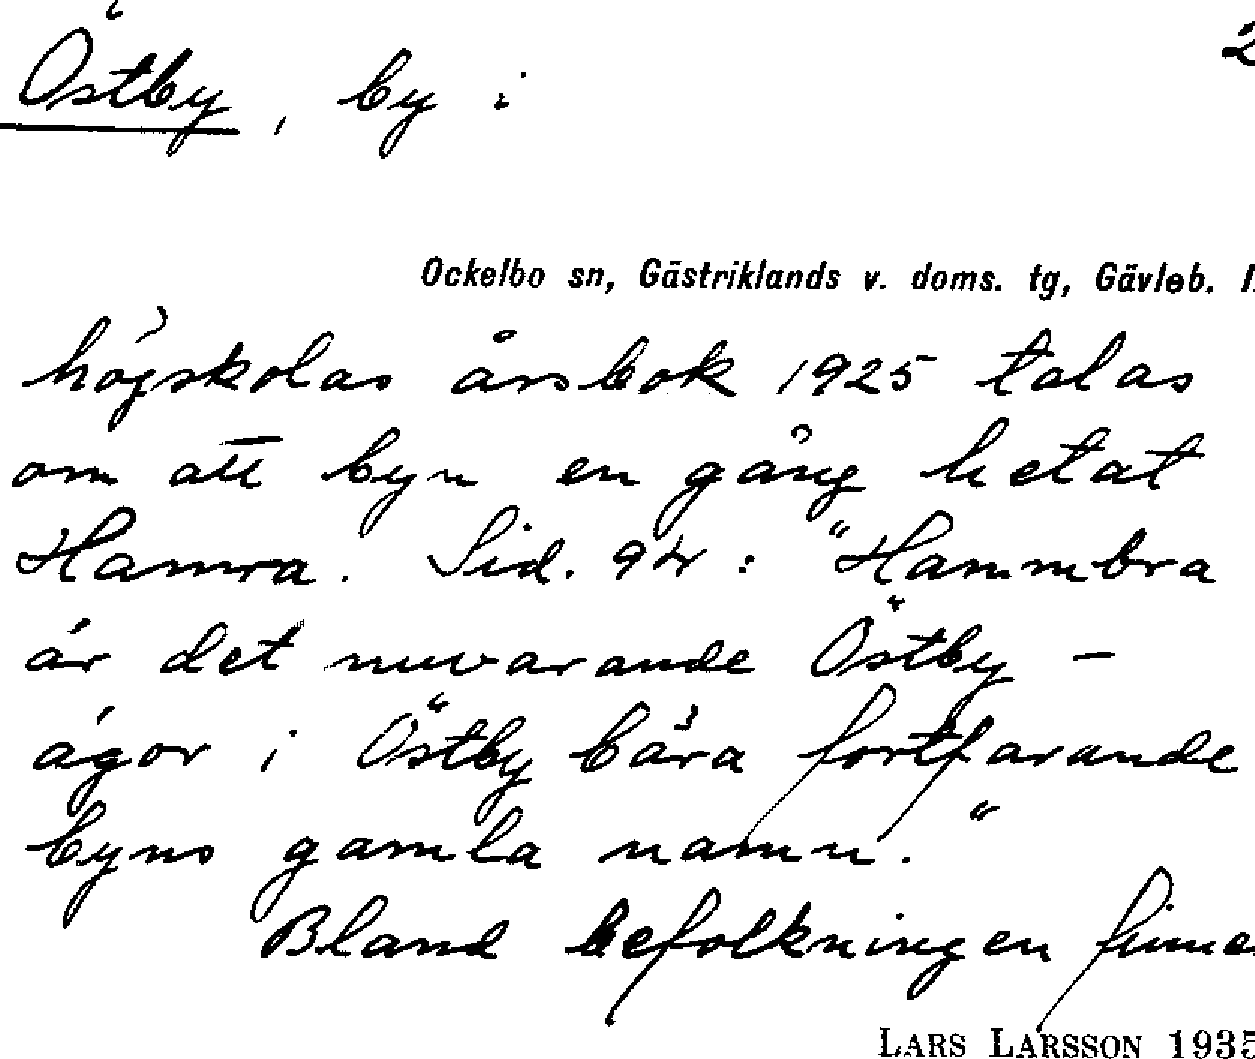 Östby, by i 2
Ockelbo sn, Gästriklands v. doms. tg, Gävleb. l.
högskolas årsbok 1925 talas
om att byn en gång hetat
Hamra. Sid. 94: "Hammbra
är det nuvarande Östby –
ägor i Östby bära fortfarande
byns gamla namn."
Bland befolkningen
LARS LARSSON 1935